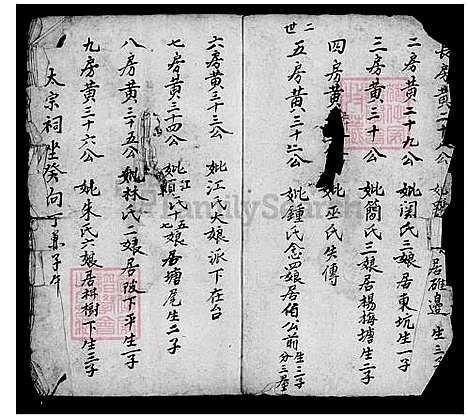 長房黃二十八公 妣 居碓邊 生三子
二房黃二十九公 妣闕氏三娘居東坑生一子
三房黃三十公 妣簡氏三娘居楊梅塘生三子
四房黃 妣巫氏失傳
二世
五房黃三十二公 妣鍾氏念四娘居伯公前生三子分三屋
六房黃三十三公 妣江氏大娘派下在台
七房黃三十四公 妣江 十五娘居塘尾生二子
八房黃三十五公 妣林氏二娘居陂下平生一子
九房黃三十六公 妣朱氏六娘居楙樹下生三子
太宗祠坐癸向丁兼子午
FamilySearch